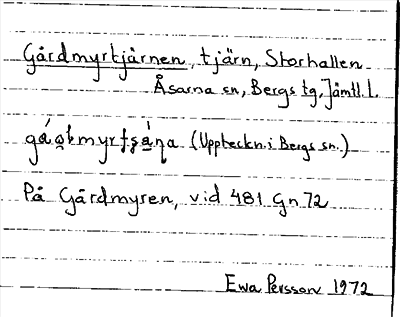 Gårdmyrtjärnen, tjärn, Storhallen
Åsarna sn, Bergs tg, Jämtl. l.
(Uppteckn. i Bergs sn.)
På Gårdmyren, vid 481 Gn 72
Ewa Persson 1972